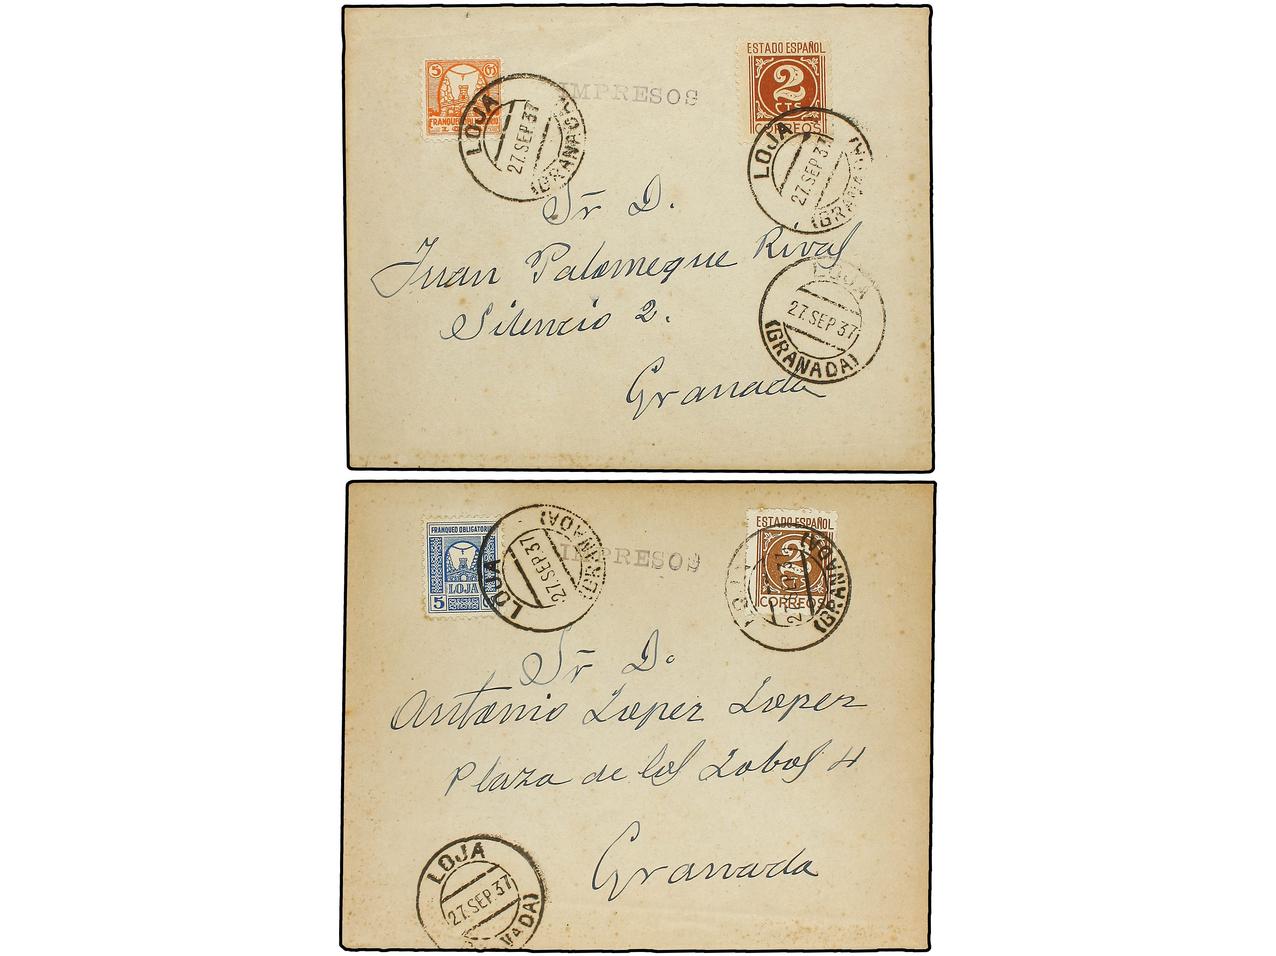 5 Cts
FRANQUEO OBLIGATORIO
LOJA
LOJA
27.SEP.37
(GRANADA)
IMPRESOS
ESTADO ESPAÑOL
2
CTS
CORREOS
LOJA
27.SEP.37
(GRANADA)
Sr D.
Juan Palomeque Rival
Silencio 2.
Granada
LOJA
27.SEP.37
(GRANADA)
FRANQUEO OBLIGATORIO
LOJA
5
LOJA
27.SEP.37
(GRANADA)
IMPRESOS
ESTADO ESPAÑOL
2
CORREOS
LOJA
(GRANADA)
Sr D.
Antonio Lopez Lopez
Plaza de los Lobos 4
Granada
LOJA
27.SEP.37